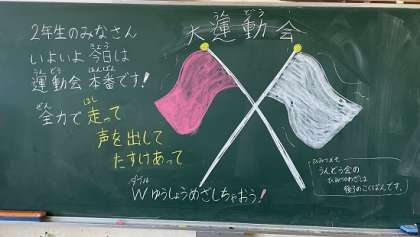 2年生のみなさん
いよいよ今日は
運動会 本番です!
全力で 走って
声を出して
たすけあって
大運動会
Wゆうしょうめざしちゃおう!
うんどう会の
ひみつのめあては
後ろのこくばんです。